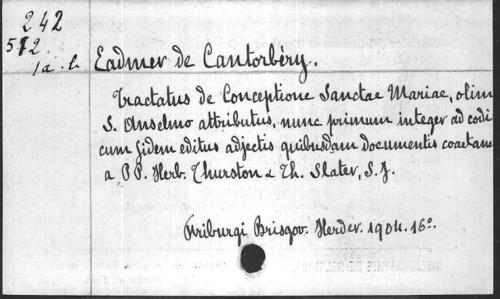 242
572.
1a-b
Eadmer de Cantorbéry.
Tractatus de Conceptione Sanctae Mariae, olim
S. Anselmo attributus, nunc primum integer ad codi
cum fidem editus adjectis quibusdam documentis coaetane
a PP. Herb. Thurston & Th. Slater, S.J.
Friburgi Brisgov. Herder. 1904. 16°.